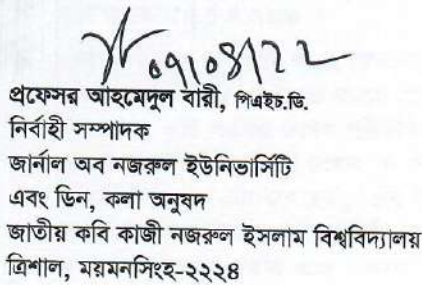 ০৭/০৪/২২
প্রফেসর আহমেদুল বারী, পিএইচ.ডি.
নির্বাহী সম্পাদক
জার্নাল অব নজরুল ইউনিভার্সিটি
এবং ডিন, কলা অনুষদ
জাতীয় কবি কাজী নজরুল ইসলাম বিশ্ববিদ্যালয়
ত্রিশাল, ময়মনসিংহ-২২২৪